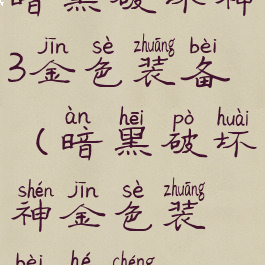 暗黑破坏神
jīn sè zhuāng bèi
3金色装备
àn hēi pò huài
(暗黑破坏
shén jīn sè zhuāng
神金色装
bèi hé chéng